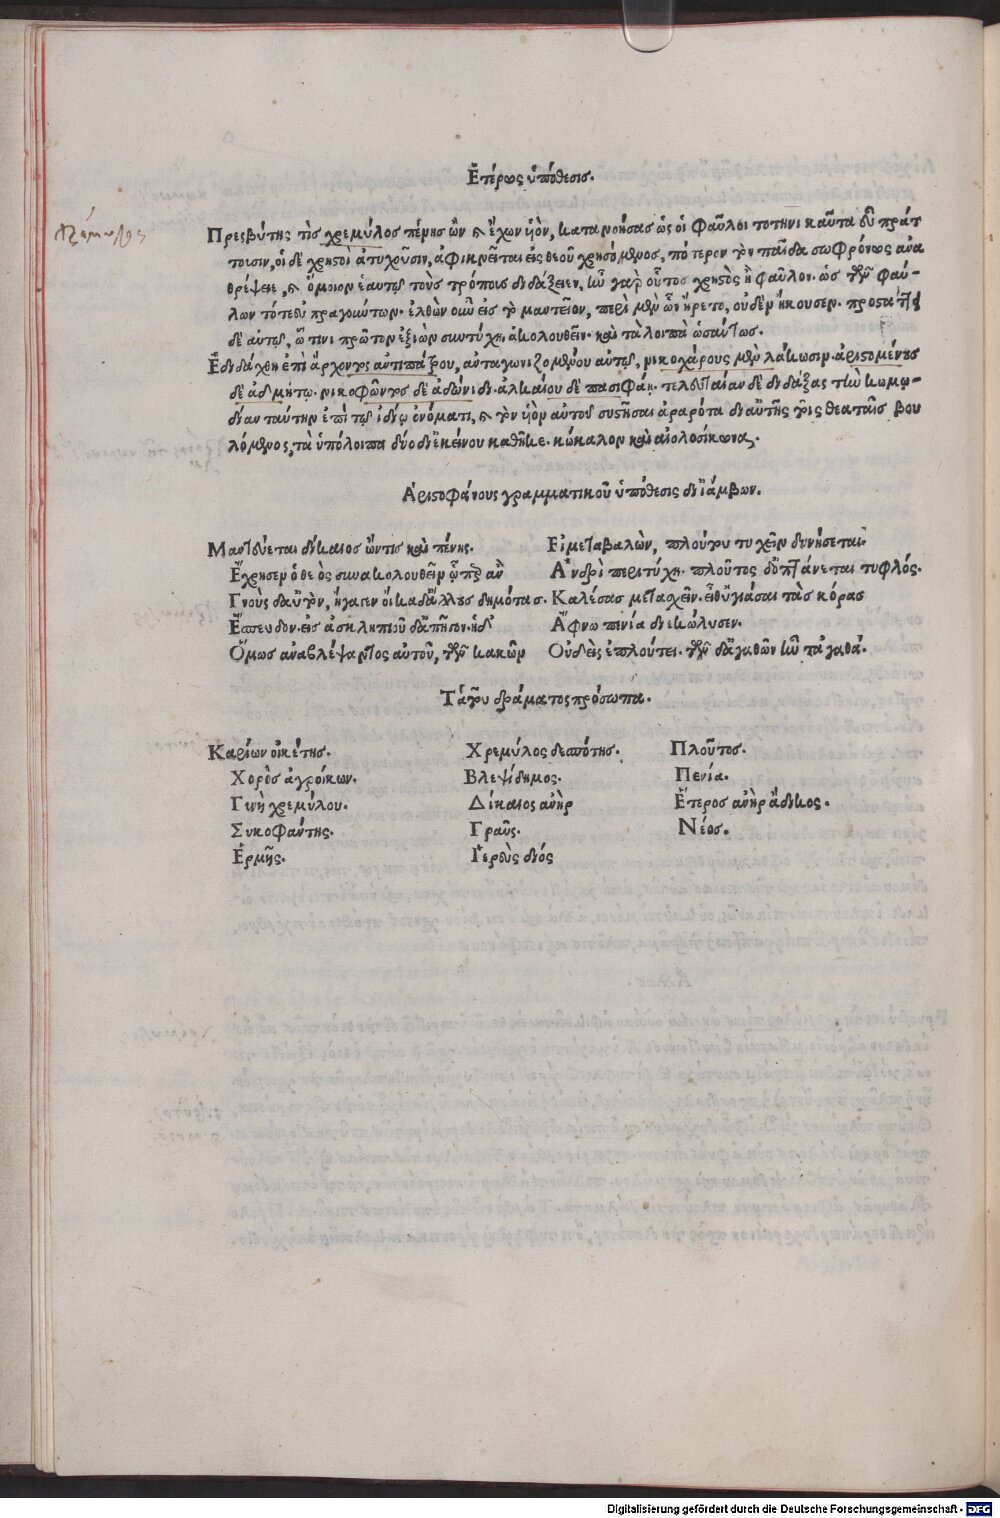 Ἑτέρως ὑπόθεσις.
χρέμυλος
Πρεσβύτης τὶς χρεμύλος πένης ὢν καὶ ἔχων υἱὸν, κατανοήσας ὡς οἱ φαῦλοι τοτηνικαῦτα εὖ πράτ
τουσιν, οἱ δὲ χρηστοὶ ἀτυχοῦσιν, ἀφικνεῖται εἰς θεοῦ χρησόμενος, πότερον τὸν παῖδα σωφρόνως ἀνα
θρέψειε, καὶ ὅμοιον ἑαυτῷ τοὺς τρόπους διδάξειεν, ἦν γὰρ οὗτος χρηστὸς ἢ φαῦλον. ὡς τῶν φαύ-
λων τότε εὐπραγούντων. ἐλθὼν οὖν εἰς τὸ μαντεῖον, περὶ μὲν ὧν ἤρετο, οὐδὲν ἤκουσεν. προστάττει
δὲ αὐτῷ, ᾧ τινι πρῶτον ἐξιὼν συντύχῃ ἀκολουθεῖν. καὶ τὰ λοιπὰ ὡσαύτως.
Ἐδιδάχθη ἐπὶ ἄρχοντος ἀντιπάτρου, ἀνταγωνιζομένου αὐτῷ, νικοχάρους μὲν λάκωσιν. ἀριστομένους
δὲ ἀδμήτῳ. νικοφῶντος δὲ ἀδώνιδι. ἀλκαίου δὲ πασιφάῃ. τελευταίαν δὲ διδάξας τὴν κωμῳ-
δίαν ταύτην ἐπὶ τῷ ἰδίῳ ὀνόματι, καὶ τὸν υἱὸν αὐτοῦ συστῆσαι ἀραρότα δι αὐτῆς τοῖς θεαταῖς βου
λόμενος, τὰ ὑπόλοιπα δύο δι ἐκείνου καθῆκε. κώκαλον καὶ αἰολοσίκωνα.
Ἀριστοφάνους γραμματικοῦ ὑπόθεσις δι ἰάμβων.
Μαντεύεται δίκαιος ὤν τις καὶ πένης. Εἰ μεταβαλὼν, πλούτου τυχεῖν δυνήσεται.
Ἔχρησεν ὁ θεὸς συνακολουθεῖν ᾧπερ ἂν Ἀνδρὶ περιτύχῃ. πλοῦτος ὀπτάνεται τυφλός.
Γνοὺς δ αὐτὸν, ἤγαγεν οἴκαδ ἄλλους δημότας. Καλέσας μετασχεῖν. εἶθ ὑγιάσαι τὰς κόρας
Ἔσπευδον. εἰς ἀσκληπιοῦ δ ἀπῆγον. ἡ δ Ἄφνω πενία διεκώλυσεν.
Ὅμως ἀναβλέψαντος αὐτοῦ, τῶν κακῶν Οὐδεὶς ἐπλούτει. τῶν δ ἀγαθῶν ἦν τἀγαθά.
Τὰ τοῦ δράματος πρόσωπα.
Καρίων οἰκέτης. Χρεμύλος δεσπότης. Πλοῦτος.
Χορὸς ἀγροίκων. Βλεψίδημος. Πενία.
Γυνὴ χρεμύλου. Δίκαιος ἀνὴρ Ἕτερος ἀνὴρ ἄδικος.
Συκοφάντης. Γραῦς. Νέος.
Ἑρμῆς. Ἱερεὺς διός
Digitalisierung gefördert durch die Deutsche Forschungsgemeinschaft - DFG